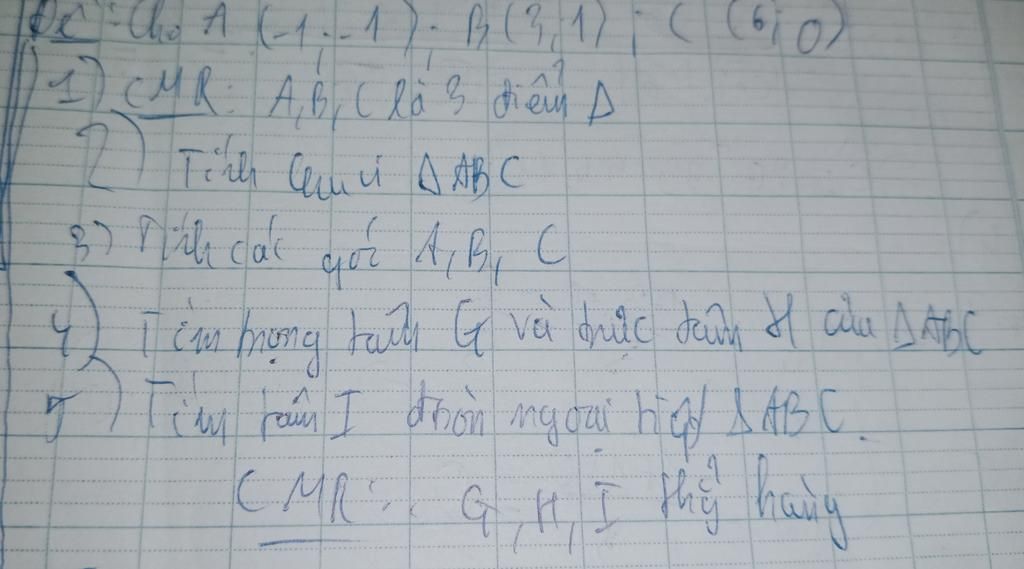 Cho A (-1; -1); B(3; 1); C (6; 0)
1) CMR: A, B, C là 3 điểm Δ
2) Tính chu vi Δ ABC
3) Tính các góc A, B, C
4) Tìm trọng tâm G và trực tâm H của Δ ABC
5) Tìm tâm I đtròn ngoại tiếp Δ ABC.
CMR: G, H, I thẳng hàng